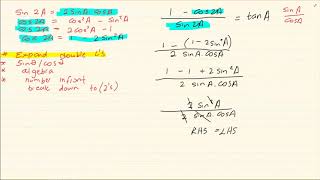 Sin 2A = 2 Sin A. Cos A
Cos 2A = cos²A - Sin²A
Cos 2A = 2cos²A - 1
Cos 2A = 1 - 2 Sin²A
* Expand double L's
* Sinθ / cosθ
* algebra
* number infront
break down to (2's)
1 - cos2A / Sin 2A = tan A Sin A / cos A
1 - (1 - 2 Sin²A) / 2 Sin A. cos A
1 - 1 + 2 Sin²A / 2 Sin A. cos A
2 Sin²A / 2 Sin A. cos A
RHS = LHS